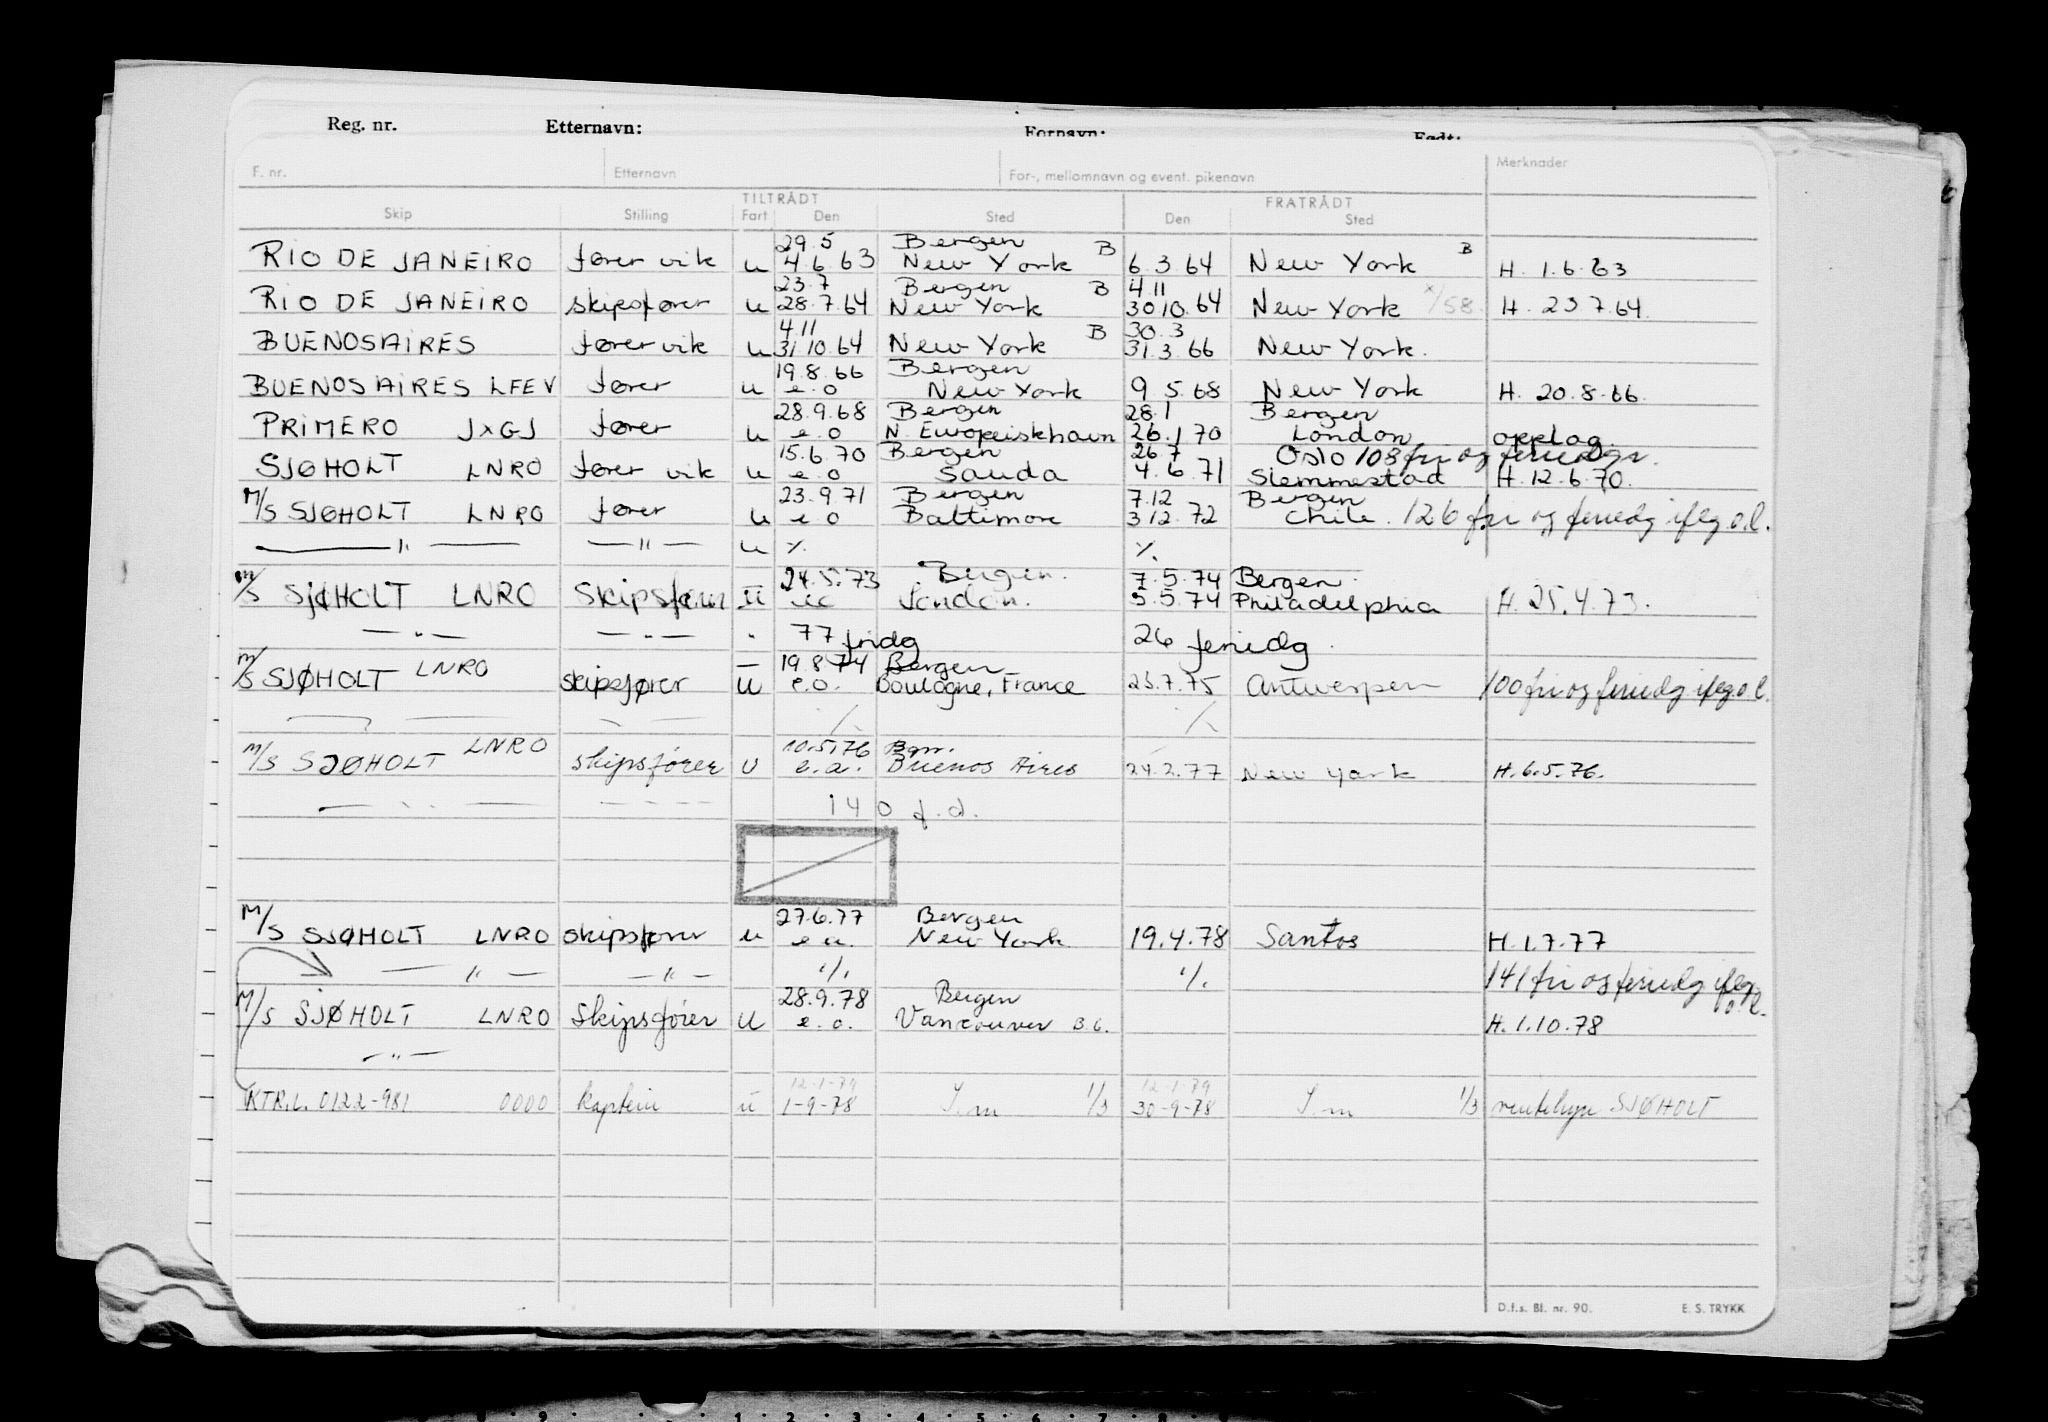 Reg. nr. Etternavn: Fornavn: Født:
F. nr. Etternavn For-, mellomnavn og event. pikenavn Merknader
TILTRÅDT FRATRÅDT
Skip Stilling Fart Den Sted Den Sted
29.5 Bergen
RIO DE JANEIRO fører vik u 4.6.63 New York B 6.3.64 New York B H. 1.6.63
23.7 Bergen 4.11
RIO DE JANEIRO skipsfører u 28.7.64 New York B 30.10.64 New York x/58 H. 23.7.64.
4.11 30.3
BUENOSAIRES fører vik u 31.10.64 New York B 31.3.66 New York.
19.8.66 Bergen
BUENOSAIRES LFEV fører u e.o New York 9.5.68 New York H. 20.8.66.
28.9.68 Bergen 28.1 Bergen
PRIMERO JXGJ fører u e.o N. Europeiskhavn 26.1.70 London opplag.
15.6.70 Bergen 26.7 Oslo 108 fri og feriedgr.
SJØHOLT LNRO fører vik u e.o Sauda 4.6.71 Slemmestad H. 12.6.70.
23.9.71 Bergen 7.12 Bergen
M/S SJØHOLT LNRO fører u e.o Baltimore 3.12.72 Chile. 126 fri og feriedg iflg o.l.
— " — — " — u ./. ./.
24.5.73 Bergen. 7.5.74 Bergen
M/S SJØHOLT LNRO Skipsfører u London. 5.5.74 Philadelphia H. 25.4.73.
— " — — " — " 77 fridg 26 feriedg.
— 19.8.74 Bergen
M/S SJØHOLT LNRO skipsfører u e.o. Boulogne, France 23.7.75 Antwerpen 100 fri og feriedg iflg o.l.
./. ./.
10.5.76 Bgn.
M/S SJØHOLT LNRO skipsfører u e.a. Buenos Aires 24.2.77 New York H. 6.5.76.
— " — — — 140 f.d.
27.6.77 Bergen
M/S SJØHOLT LNRO skipsfører u e.a. New York 19.4.78 Santos H. 1.7.77
— " — — " — ./. ./. 141 fri og feriedg iflg o.l.
28.9.78 Bergen
M/S SJØHOLT LNRO Skipsfører u e.o. Vancouver B.C. H. 1.10.78
— " —
12-1-79 12-1-79
KTR.L. 0122-981 0000 kaptein u 1-9-78 S.m 1/3 30-9-78 S.m 1/3 ventehyre SJØHOLT
D.f.s. Bl. nr. 90. E. S. TRYKK